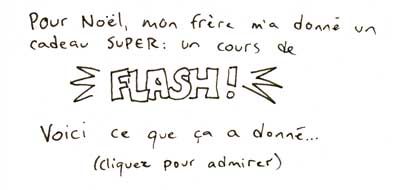 Pour Noël, mon frère m'a donné un
cadeau SUPER: un cours de
FLASH!
Voici ce que ça a donné...
(cliquez pour admirer)